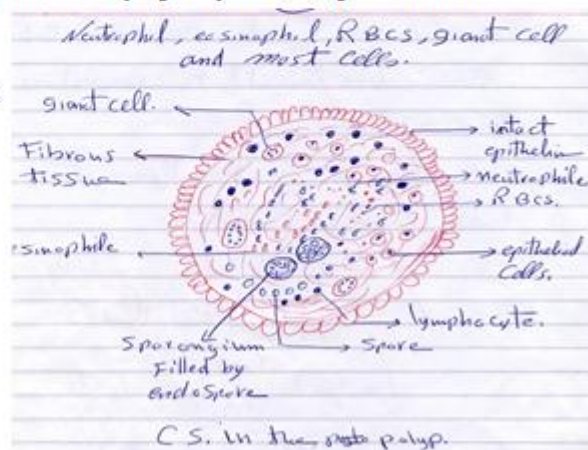 Neutrophil, eosinophil, RBCS, giant cell
and most cells.
giant cell.
Fibrous
tissue
sinophile
intact
epithelium
neutrophile
RBCs.
epitheloid
Cells.
lymphocyte.
Spore
Sporangium
Filled by
endospore
C S. in the polyp.